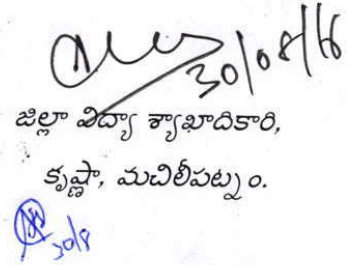 30/08/16
జిల్లా విద్యా శ్యాఖాదికారి,
కృష్ణా, మచిలీపట్నం.
30/8